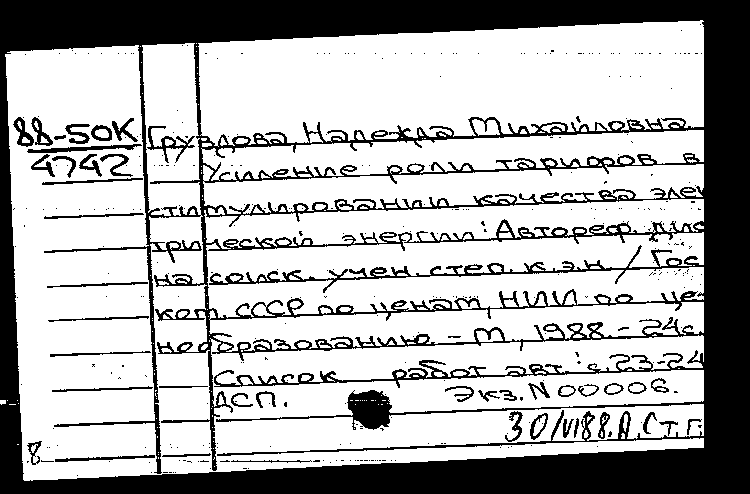 88-50К
4742
Груздова, Надежда Михайловна
Усиление роли тарифов в
стимулировании качества элек
трической энергии: Автореф. дис
на соиск. учен. степ. к.э.н. / Гос
ком. СССР по ценам, НИИ по це-
нообразованию. - М., 1988. - 24с.
Список работ авт.: с. 23-24
ДСП. Экз. N 00006.
30/VI88. А. Ст. Г.
8